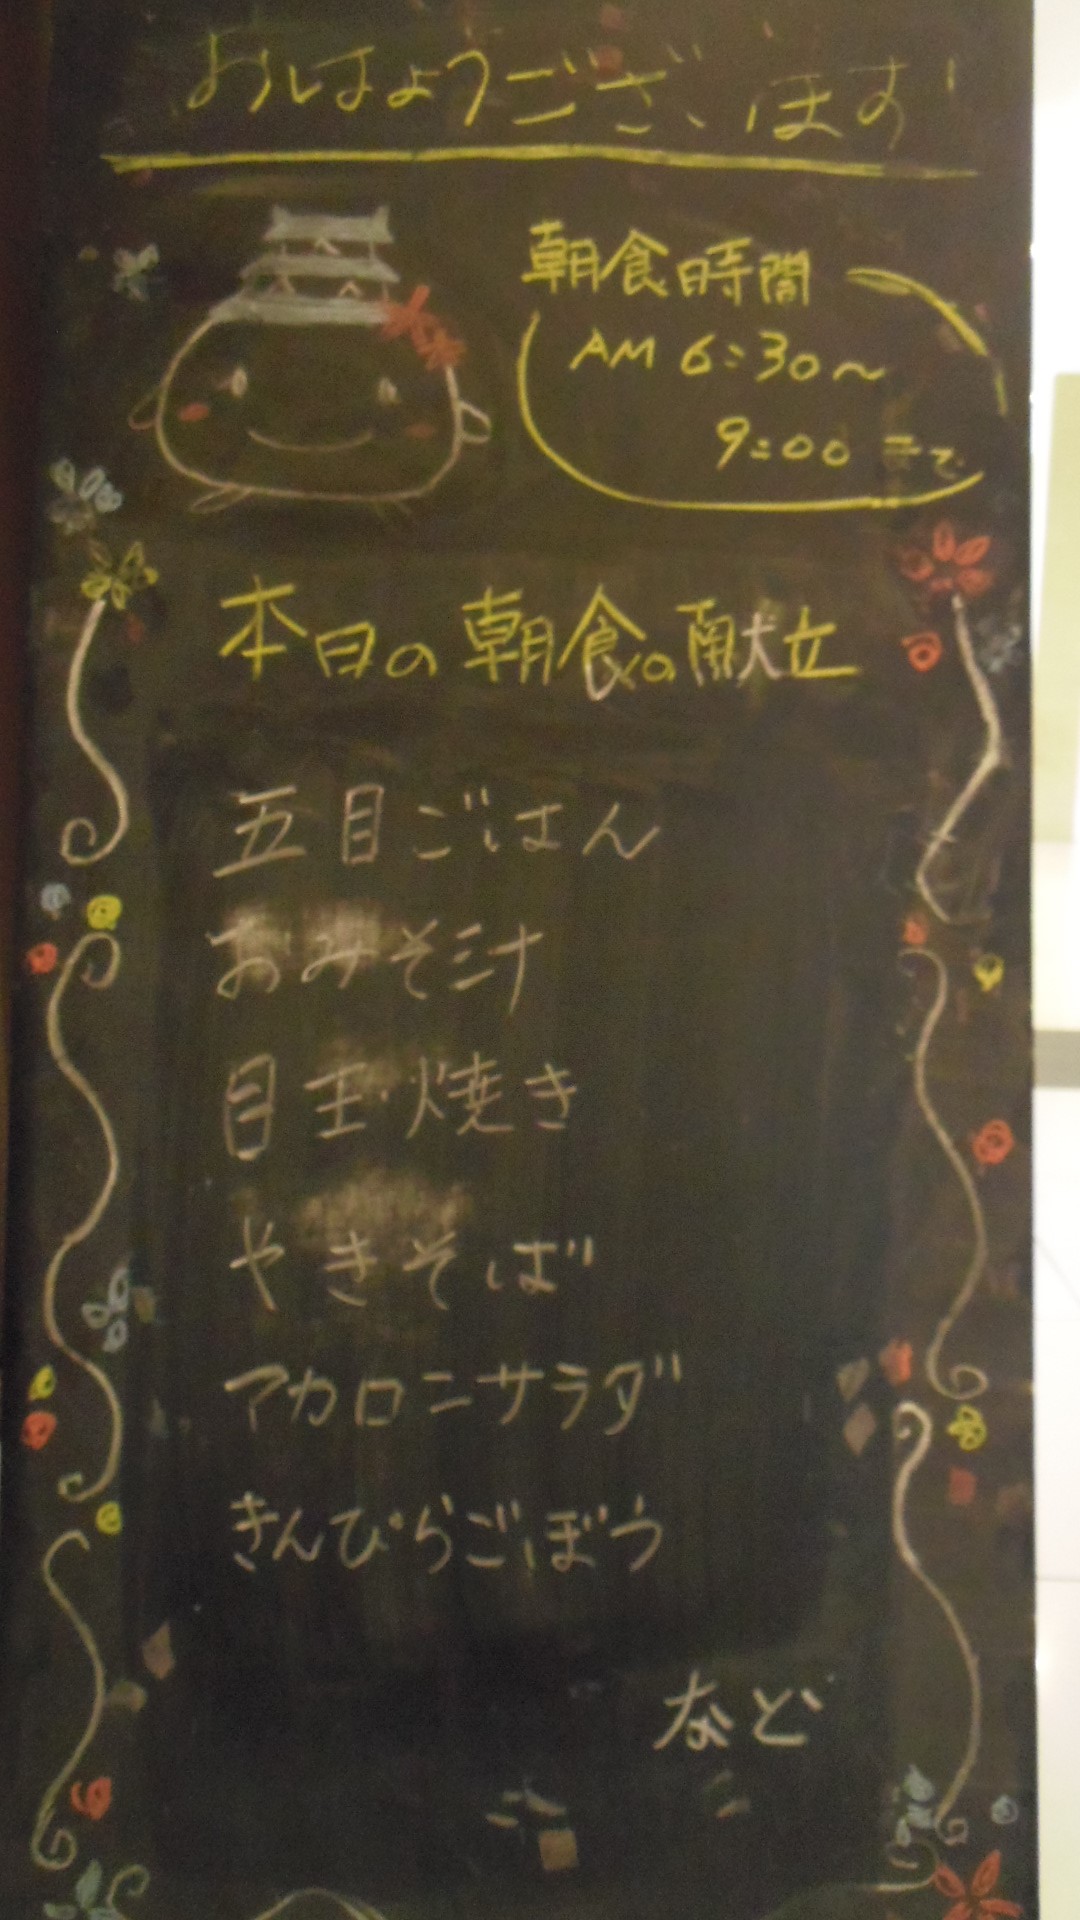 おはようございます
朝食時間
AM 6:30～
9:00まで
本日の朝食の献立
五目ごはん
おみそ汁
目玉焼き
やきそば
マカロニサラダ
きんぴらごぼう
など